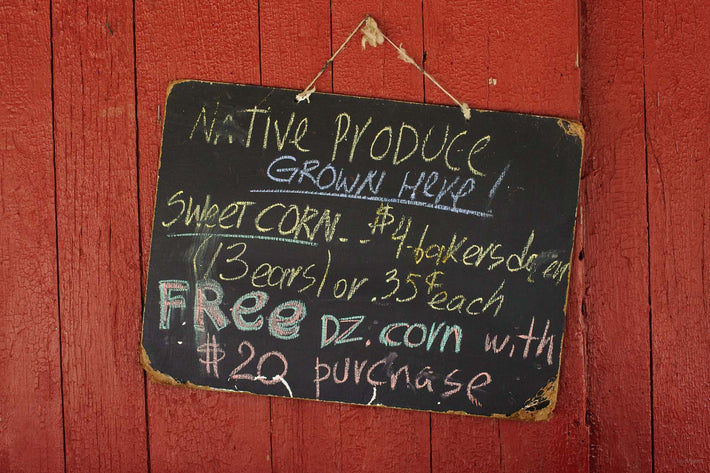 Native Produce
Grown Here!
Sweet Corn - - $4 bakers dozen
(13 ears) or .35¢ each
Free Dz. corn with
$20 purchase